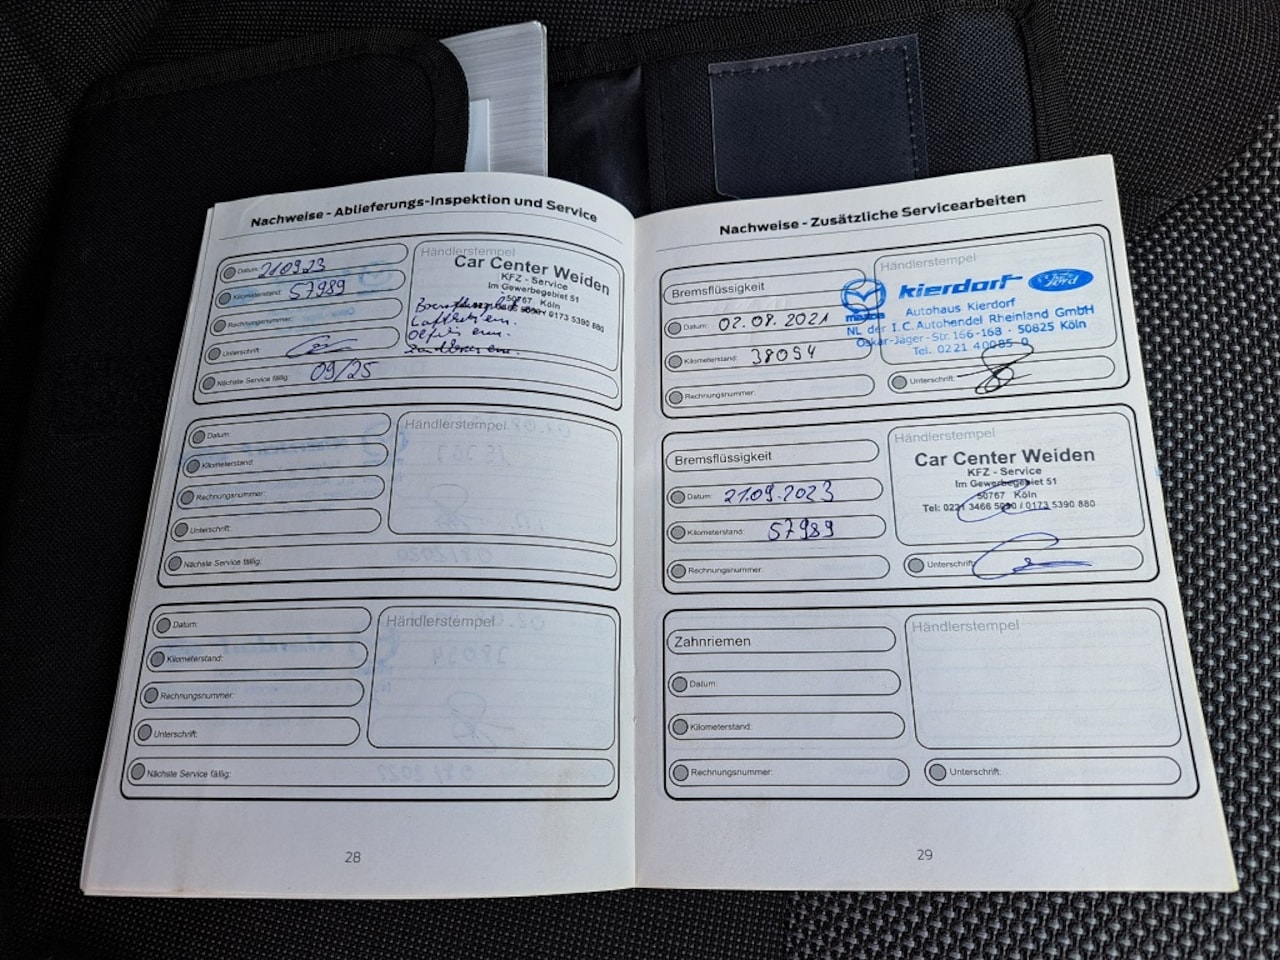 Nachweise - Ablieferungs-Inspektion und Service
Datum: 210923
Kilometerstand: 57989
Rechnungsnummer:
Unterschrift:
Nächste Service fällig: 09/25
Händlerstempel
Car Center Weiden
KFZ - Service
Im Gewerbegebiet 51
50767 Köln
0173 5390 880
Datum:
Kilometerstand:
Rechnungsnummer:
Unterschrift:
Nächste Service fällig:
Händlerstempel
Datum:
Kilometerstand:
Rechnungsnummer:
Unterschrift:
Nächste Service fällig:
Händlerstempel
28
Nachweise - Zusätzliche Servicearbeiten
Bremsflüssigkeit
Datum: 02.08.2021
Kilometerstand: 38054
Rechnungsnummer:
Händlerstempel
mazda kierdorf Ford
Autohaus Kierdorf
NL der I.C. Autohandel Rheinland GmbH
Oskar-Jäger-Str. 166-168 · 50825 Köln
Tel. 0221 40085 0
Unterschrift:
Bremsflüssigkeit
Datum: 21.09.2023
Kilometerstand: 57989
Rechnungsnummer:
Händlerstempel
Car Center Weiden
KFZ - Service
Im Gewerbegebiet 51
50767 Köln
Tel: 0221 3466 5090 / 0173 5390 880
Unterschrift:
Zahnriemen
Datum:
Kilometerstand:
Rechnungsnummer:
Händlerstempel
Unterschrift:
29